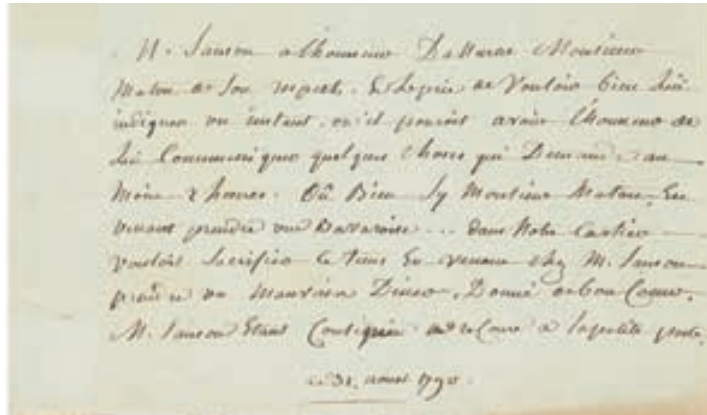 M. Sanson a l'honneur D'assurer Monsieur
Maton de Son respect. & Leprie de Vouloir bien lui
indiquer un instant où il pouroit avoir l'honneur de
lui Communiquer quelque Chose qui Demande au
Moins 2 heures. Où Bien Sy Monsieur Maton, En
venant prendre une Bavaroise... dans Notre Cartier
vouloit Sacrifier Ce tems En venant chez M. Sanson
prandre un Mauvais Diner, Donné de bon Coeur.
M. Sanson Etant Consigné à la petite porte.
ce 31. aoust 1790